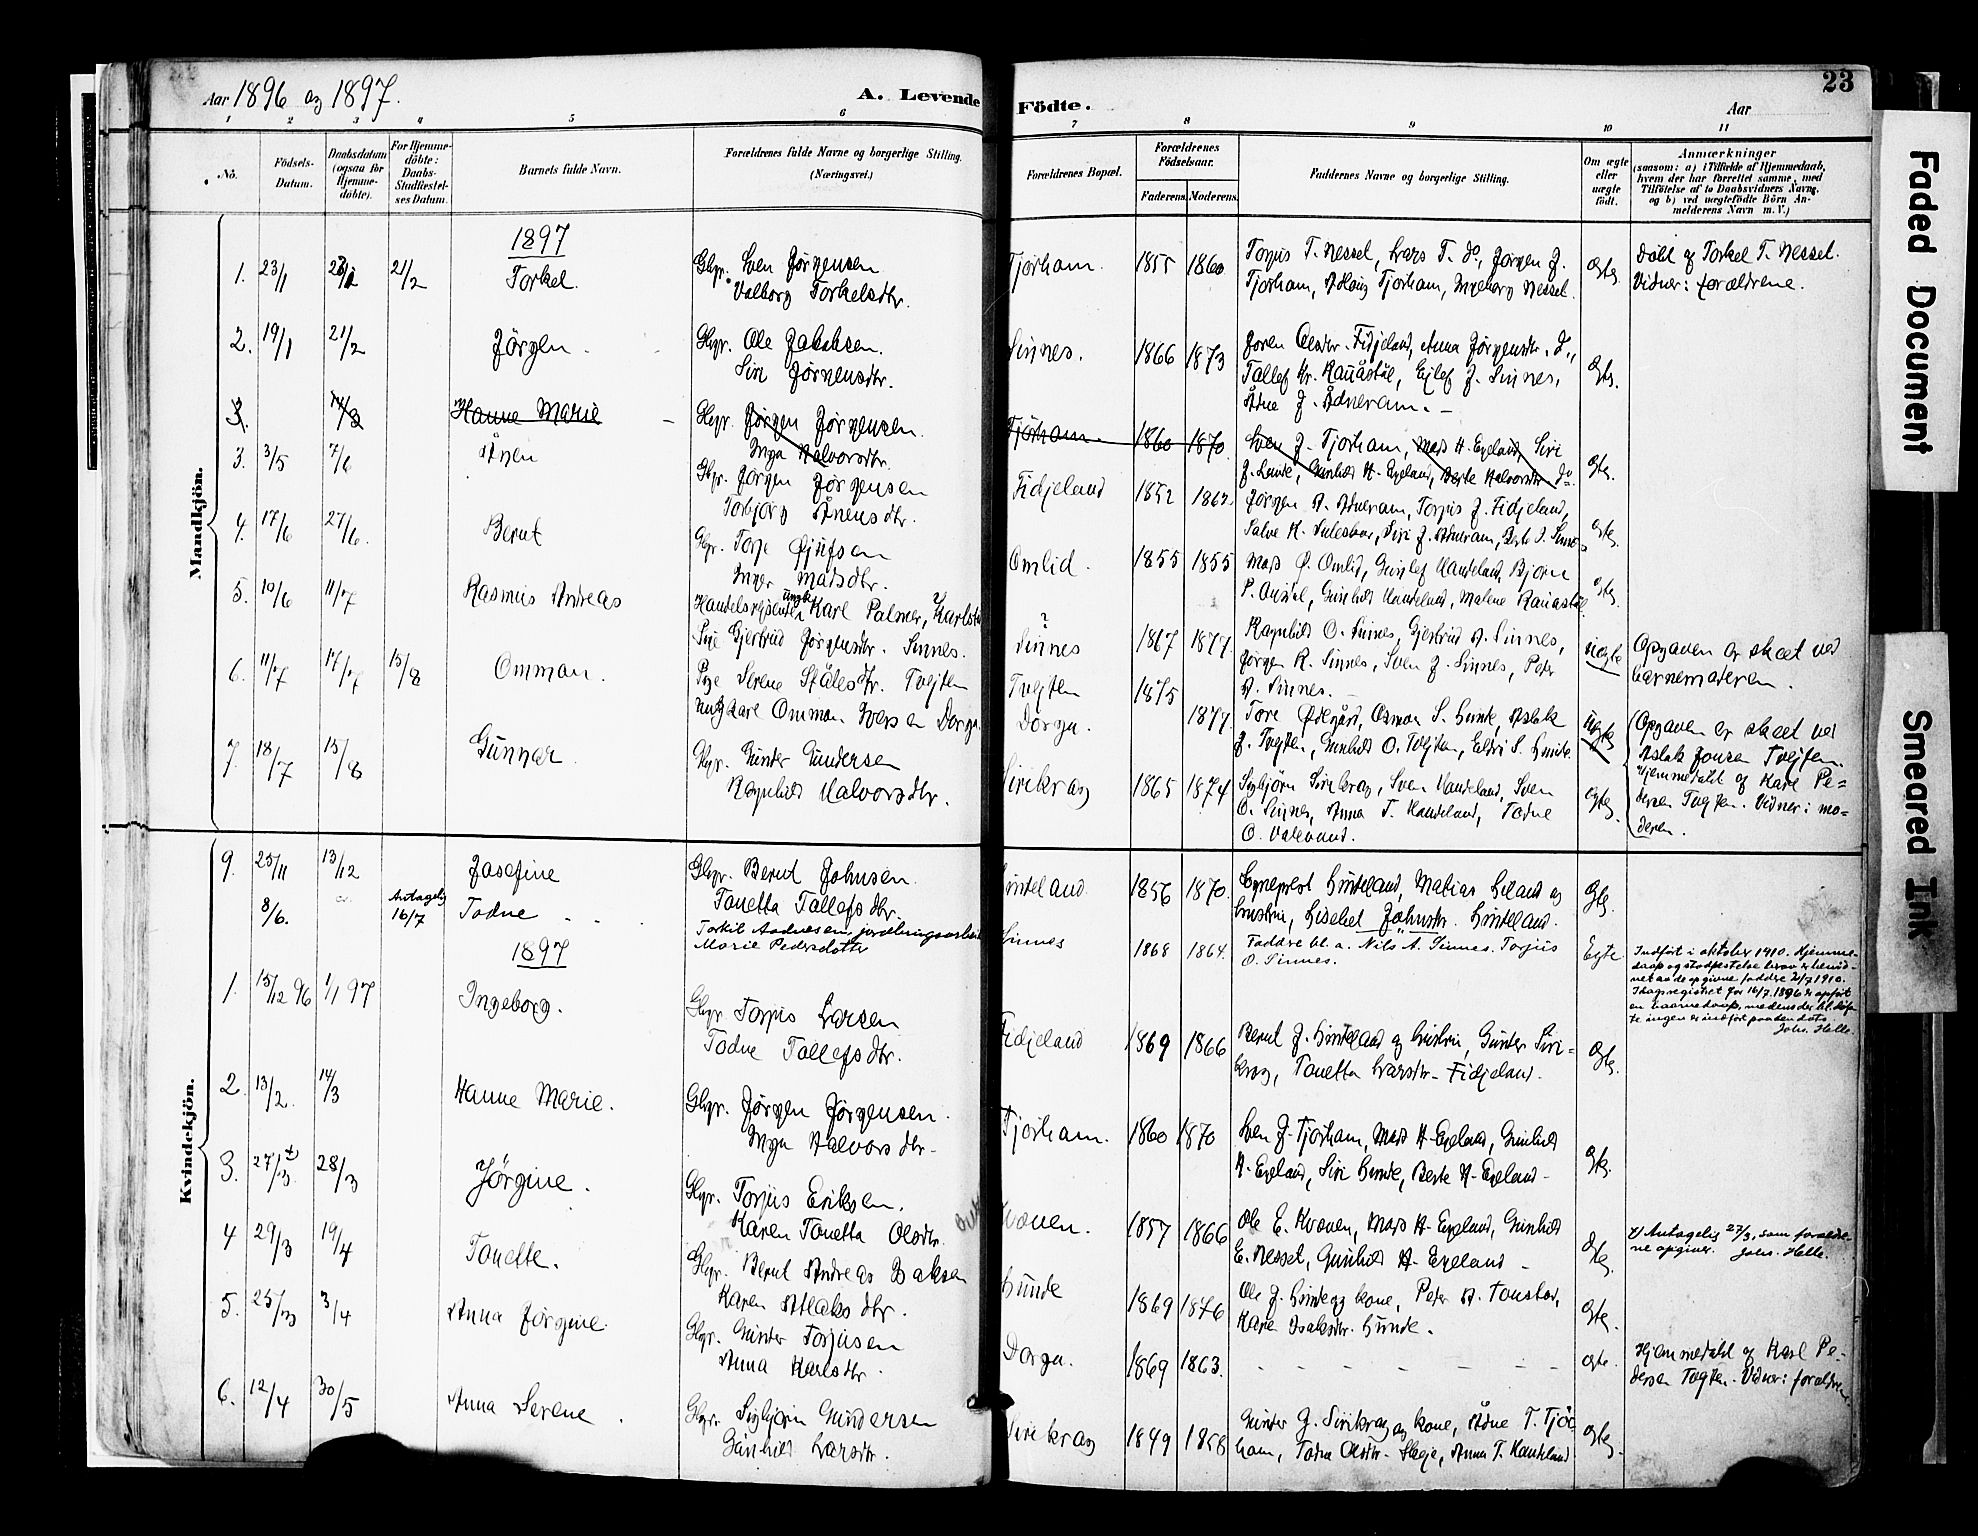 Aar 1896 og 1897.
A. Levende Födte.
23
Aar
1 2 3 4 5 6 7 8 9 10 11
No.
Födsels-Datum.
Daabsdatum (ogsaa for Hjemme-döbte).
For Hjemme-döbte: Daabs-Stadfæstel-ses Datum.
Barnets fulde Navn.
Forældrenes fulde Navne og borgerlige Stilling. (Næringsvei.)
Forældrenes Bopæl.
Forældrenes Födselsaar.
Faderens. Moderens.
Faddernes Navne og borgerlige Stilling.
Om ægte eller uægte födt.
Anmærkninger
(saasom: a) i Tilfælde af Hjemmedaab, hvem der har forrettet samme, med Tilföielse af to Daabsvidners Navne, og b) ved uægtefödte Börn An-melderens Navn m. V.)
Mandkjön.
1897
1. 23/1 21/2 Torkel. Gbgr. Sven Jörgensen
Valborg Torkelsdtr. Tjorham. 1855 1860
Torjus T. Nessel, Lars T. do, Jörgen J.
Tjorham, Tjorham, Ingeborg Nessel. ægte
Döbt af Torkel T. Nessel.
Vidner: forældrene.
2. 19/1 21/2 Jörgen. Gbgr. Ole Jakobsen.
Siri Jörgensdtr. Sinnes. 1866 1873
Joren Olesdtr. Fidjeland, Anna Jörgensdtr. do,
Tallef Kr. Rauåstöl, Ejlef J. Sinnes,
Ådne J. Ådneram. ægte
3. 14/3 Hanne Marie Gbgr. Jörgen Jörgensen.
Inga Halvorsdtr. Tjorham. 1860 1870
Sven J. Tjorham, Mads H. Egeland, Siri
J. Lunde, Gunhild H. Egeland, Berte Halvorsdtr do. ægte
3. 3/5 7/6 Ånen Gbgr. Jörgen Jörgensen
Torbjörg Ånensdtr. Fidjeland 1852 1862.
Jörgen A. Ådneram, Torjus J. Fidjeland,
Salve K. Suleskar, Siri J. Ådneram, Berte J. Sinnes ægte
4. 17/6 27/6. Berut Gbgr. Torje
Inger Matsdtr. Omlid. 1855 1855
Mads Ö. Omlid, Gunlef Handeland, Björn
P. Gunhild Handeland, Malene Rauåstöl ægte
5. 10/6 11/7 Rasmus Andreas Handelsrejsende ungk. Karl Palmer, Karlsta
Pige Gjertrud Jörgensdtr. Sinnes. ? Sinnes 1867 1877.
Ragnhild O. Sinnes, Gjertrud A. Sinnes,
Jörgen R. Sinnes, Sven J. Sinnes, Peter
A. Sinnes. uægte
Opgaven er skeet ved
barnemoderen.
6. 11/7 17/7 15/8 Omman. Pige Serene Ståles dtr. Tvejten
ungkarl Omman Iversen Dorga. Tvejten 1875
Dorga. 1877.
Tore Ödegård, Osmon S. Lunde, Aslak
J. Tvejten, Gunhild O. Tvejten, Eldri S. Lunde. uægte
Opgaven er skeet ved
Aslak Jonsen Tvejten.
Hjemmedöbt af Karl Pe-
dersen Tvejten. Vidner: mo-
deren.
7. 18/7 15/8 Gunnar Gbgr. Gunder Gundersen
Ragnhild Halvorsdtr. Sirikrag 1865 1874
Sigbjörn Sirikrag, Sven Handeland, Sven
O. Sinnes, Anna T. Handeland, Todne
O. Valevand. ægte
Kvindekjön.
9. 25/11 13/12 Josefine Gbgr. Berut Johnsen.
Tonetta Tallefsdtr. Linteland 1856 1870.
Sogneprest Linteland, Matias Liland og
hustru, Lisebet Johnsdtr. Linteland. ægte
8/6. Antagelig 16/7 Todne Torkil Aadnesen, jordbrugsarbeid
Marie Pedersdatter Sinnes 1868 1864.
Faddere bl. a. Nils A. Sinnes. Torjus
O. Sinnes. Egte
Indført i oktober 1910. Hjemme-
daab og stadfæstelse herav er bevid-
net av de opgivne faddre 21/7 1910.
I dagsregistret for 16/7 1896 er opført
en barnedaap, medens der bl. døp-
te ingen er indført paa den dato.
Johs. Helle.
1897
1. 15/12 96 1/1 97 Ingeborg. Gbgr. Torjus Larsen
Todne Tallefsdtr. Fidjeland 1869 1866
Berut J. Linteland og hustru, Gunder Siri-
krag, Tonetta Larsdtr. Fidjeland. ægte
2. 13/2 14/3 Hanne Marie. Gbgr. Jörgen Jörgensen.
Inga Halvorsdtr. Tjorham. 1860 1870
Sven J. Tjorham, Mads H. Egeland, Gunhild
H. Egeland, Siri Lunde, Berte H. Egeland ægte
3. 27/3 28/3 Jörgine. Gbgr. Torjus Eriksen.
Karen Tonetta Olsdtr. Kvænen. 1857 1866
Ole E. Kvænen, Mads H. Egeland, Gunhild
E. Nessel, Gunhild H. Egeland ægte
Antagelig 27/3, som forældre-
ne opgiver. Johs. Helle.
4 29/3 19/4 Tonette. Gbgr. Berut Andreas Isaksen
Karen Atlaksdtr. Lunde 1869 1876
Ole J. Lunde og kone, Peter A. Tonstad,
Karen Isaksdtr. Lunde. ægte
5. 25/3 3/4 Anna Jörgine. Gbgr. Gunder Torjusen
Anna Karlsdtr. Dorga. 1869 1863. ægte.
Hjemmedöbt af Karl Pe-
dersen Tvejten. Vidner: forældrene
6. 12/4 30/5 Anna Serene. Gbgr. Sigbjörn Gundersen
Gunhild Larsdtr. Sirikrag 1849 1858
Gunder J. Sirikrag og kone, Ådne T. Tjör-
ham, Todne Olsdtr. Skeje, Anna T. Handeland ægte
Faded Document
Smeared Ink